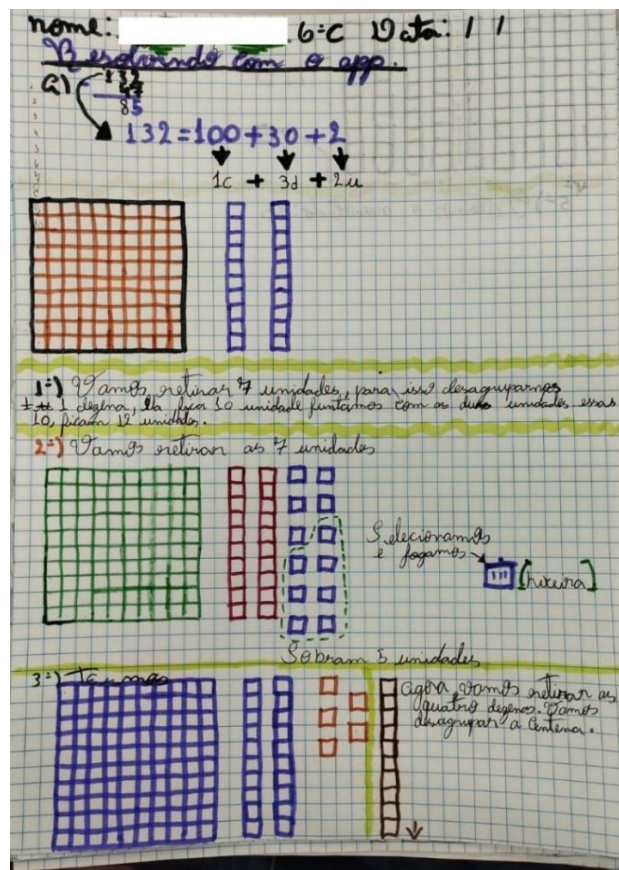 nome: 6ºC Data: / /
Resolvendo com o app.
a) 132
- 47
85
132=100+30+2
1c + 3d + 2u
1º-) Vamos retirar 7 unidades, para isso desagrupamos
1 dezena, ela fica 10 unidade juntamos com as duas unidades essas
10, ficam 12 unidades.
2º-) Vamos retirar as 7 unidades
Selecionamos
e jogamos
[lixeira]
Sobram 5 unidades
3º-) Temos
agora vamos retirar as
quatro dezenas. Vamos
desagrupar a Centena.